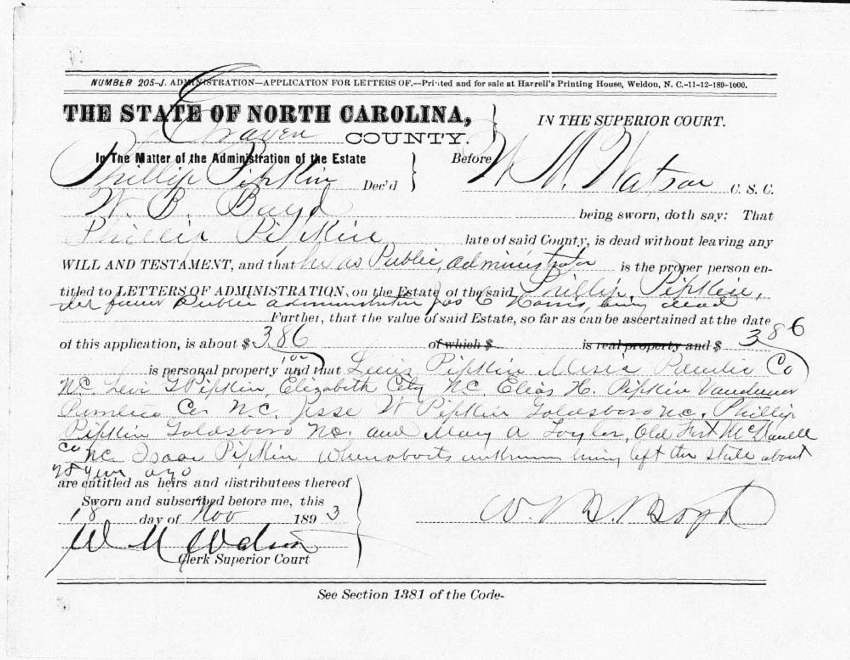 NUMBER 205-J. ADMINISTRATION—APPLICATION FOR LETTERS OF.—Printed and for sale at Harrell's Printing House, Weldon, N. C.-11-12-189-1000.
THE STATE OF NORTH CAROLINA,
Craven COUNTY.
IN THE SUPERIOR COURT.
In The Matter of the Administration of the Estate
Phillip Pipkin Dec'd
Before W. M. Watson C. S. C.
W. B. Boyd being sworn, doth say: That
Phillip Pipkin late of said County, is dead without leaving any
WILL AND TESTAMENT, and that he as Public administrator is the proper person en-
titled to LETTERS OF ADMINISTRATION, on the Estate of the said Phillip Pipkin,
the former Public administrator Jas C being dead
Further, that the value of said Estate, so far as can be ascertained at the date
of this application, is about $ 386 of which $ is real property and $ 386
is personal property and that Louis Pipkin Mesic Pamlico Co
N.C. Levi Pipkin, Elizabeth City N.C. Elias H. Pipkin Vandemer
Pamlico Co N.C. Jesse W Pipkin Goldsboro N.C. Phillip
Pipkin Goldsboro N.C. and Mary A Old Fort McDowell
Co N.C. Isaac Pipkin Whereabouts unknown having left the state about
years ago
are entitled as heirs and distributees thereof
Sworn and subscribed before me, this
18 day of Nov 1893
W. B. Boyd
W M Watson
Clerk Superior Court
See Section 1381 of the Code-